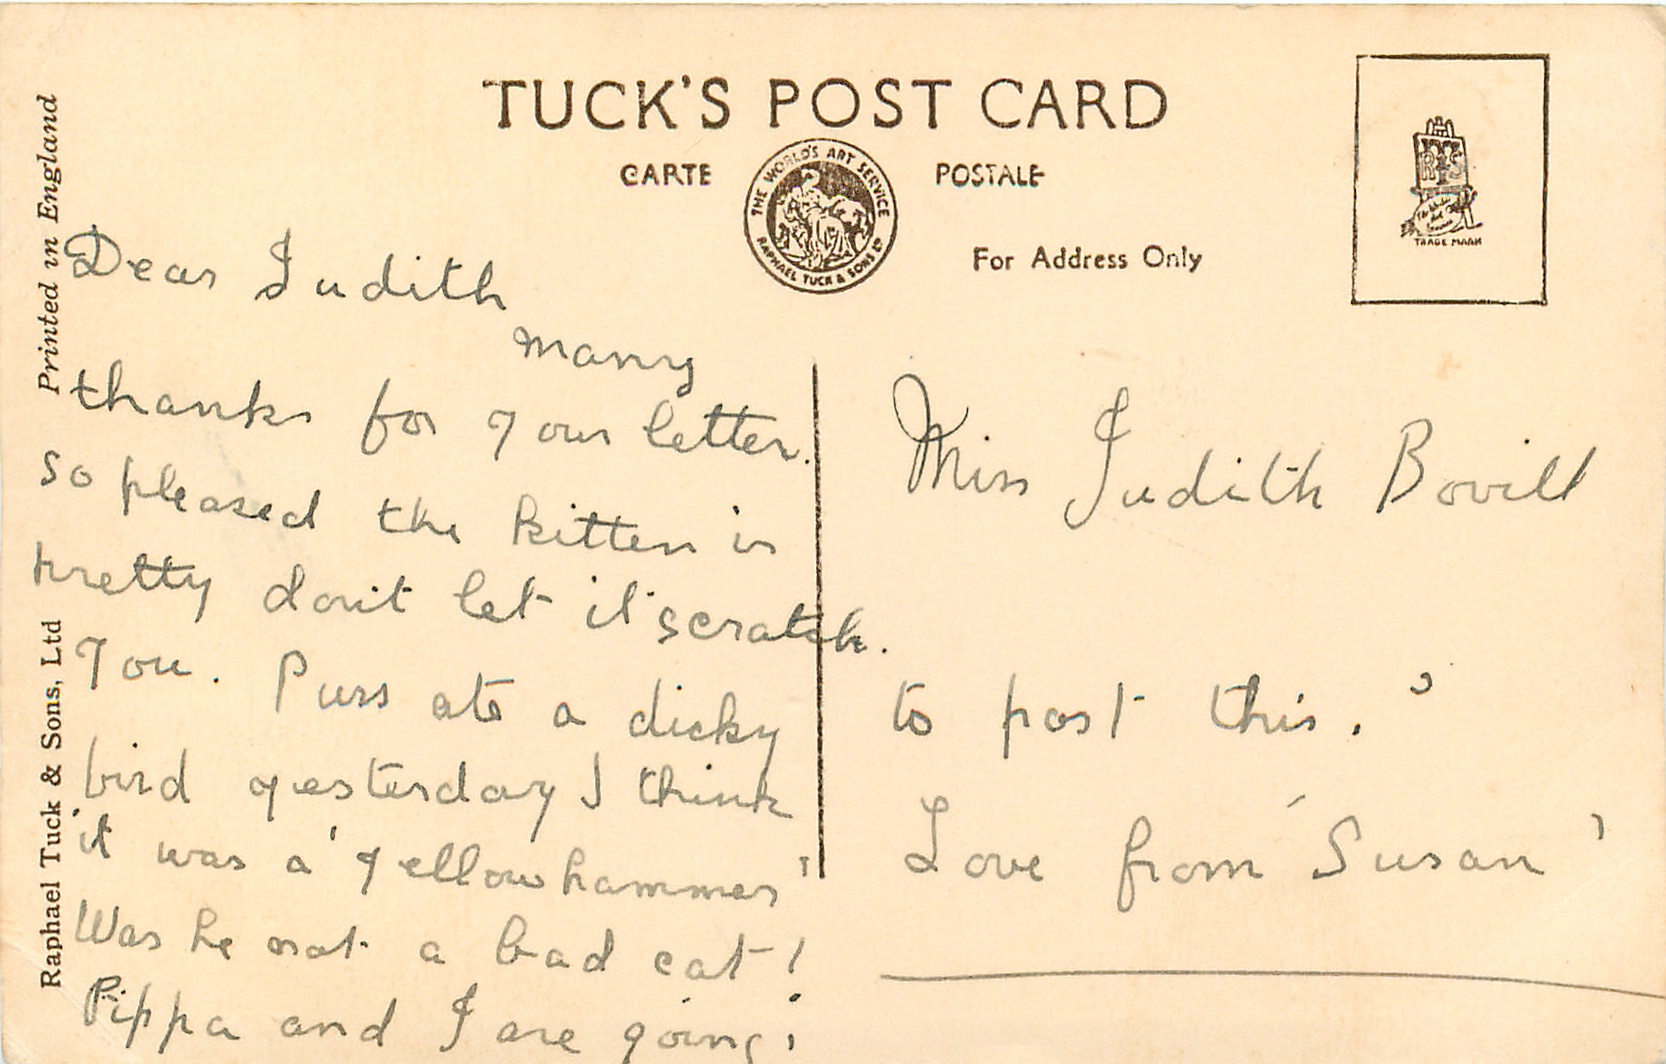 TUCK'S POST CARD
CARTE POSTALE
THE WORLD'S ART SERVICE
RAPHAEL TUCK & SONS LTD
For Address Only
TRADE MARK
Printed in England
Raphael Tuck & Sons, Ltd
Dear Judith
many
thanks for your letter.
so pleased the kitten is
pretty don't let it scratch.
you. Puss ate a dicky
bird yesterday I think
it was a 'yellow hammer'
Was he not a bad cat!
Pippa and I are going
Miss Judith Bovill
to post this.
Love from 'Susan'